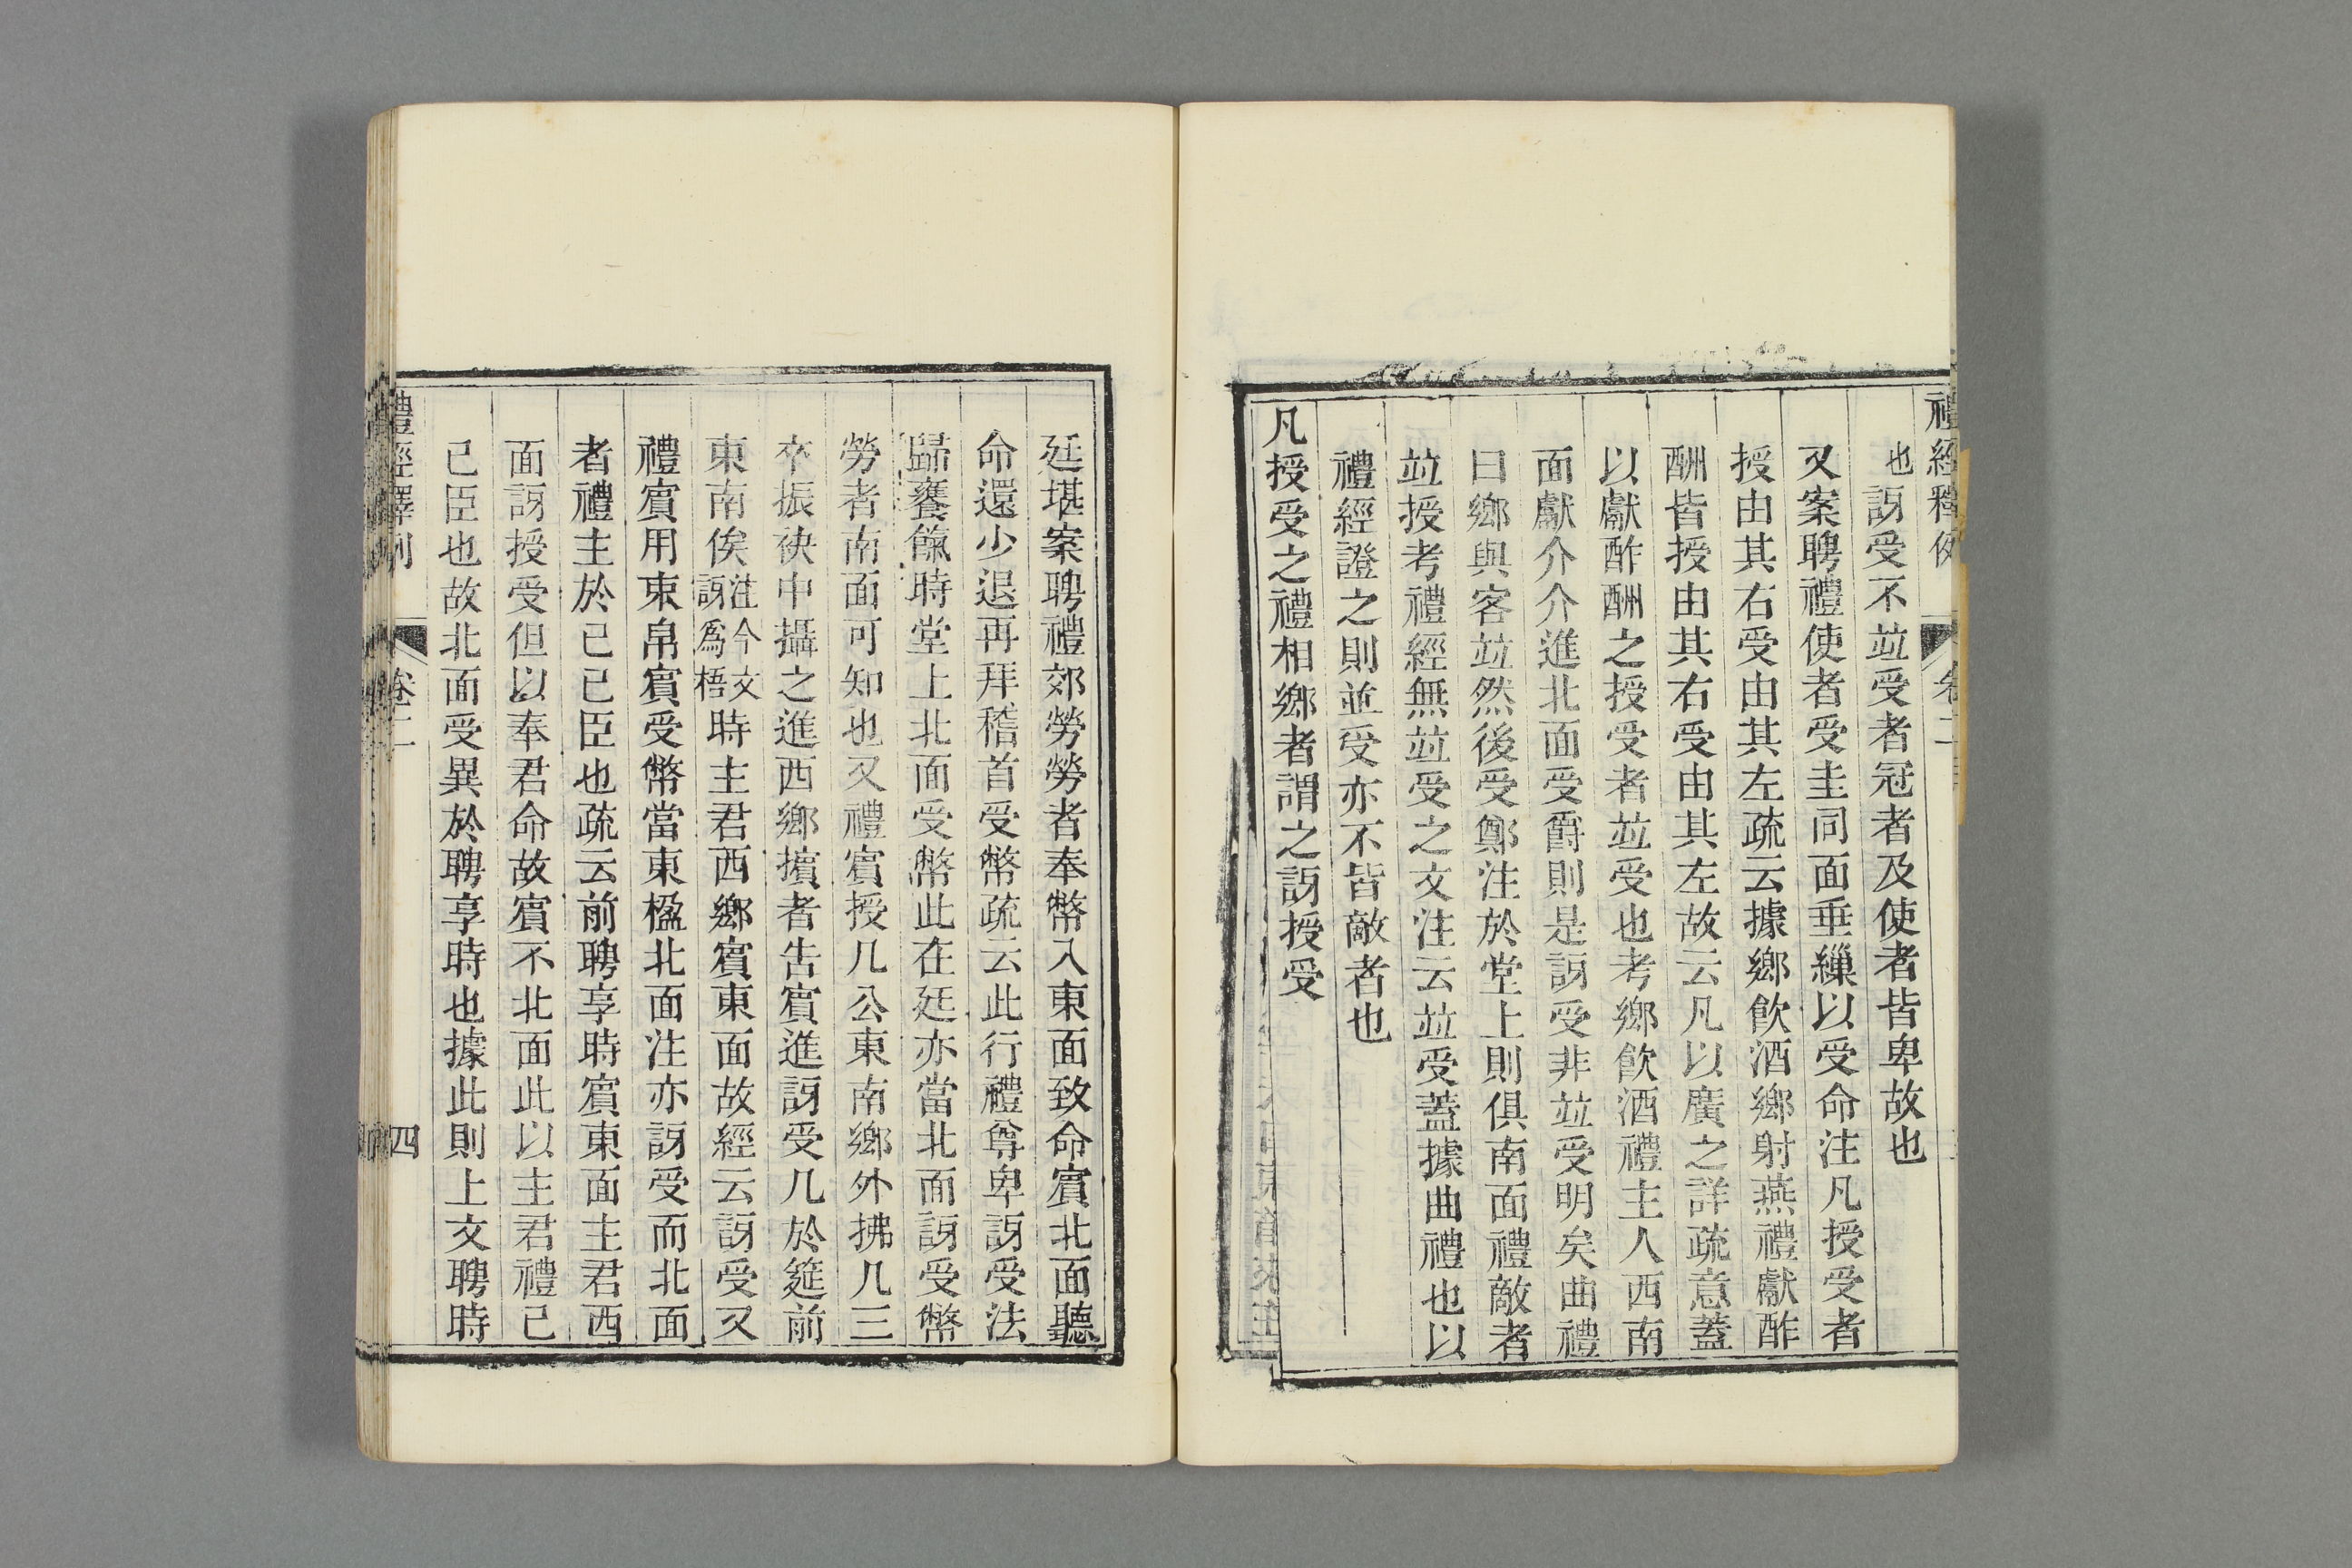 禮經釋例 卷二
也訝受不竝受者冠者及使者皆卑故也
又案聘禮使者受圭同面垂繅以受命注凡授受者
授由其右受由其左疏云據鄉飲酒鄉射燕禮獻酢
酬皆授由其右受由其左故云凡以廣之詳疏意蓋
以獻酢酬之授受者竝受也考鄉飲酒禮主人西南
面獻介介進北面受爵則是訝受非竝受明矣曲禮
曰鄉與客竝然後受鄭注於堂上則俱南面禮敵者
竝授考禮經無竝受之文注云竝受蓋據曲禮也以
禮經證之則並受亦不皆敵者也
凡授受之禮相鄉者謂之訝授受
廷堪案聘禮郊勞勞者奉幣入東面致命賓北面聽
命還少退再拜稽首受幣疏云此行禮尊卑訝受法
歸饔餼時堂上北面受幣此在廷亦當北面訝受幣
勞者南面可知也又禮賓授几公東南鄉外拂几三
卒振袂中攝之進西鄉擯者告賓進訝受几於筵前
東南俟注今文訝爲梧時主君西鄉賓東面故經云訝受又
禮賓用束帛賓受幣當東楹北面注亦訝受而北面
者禮主於己己臣也疏云前聘享時賓東面主君西
面訝授受但以奉君命故賓不北面此以主君禮己
己臣也故北面受異於聘享時也據此則上文聘時
禮經釋例 卷二 四